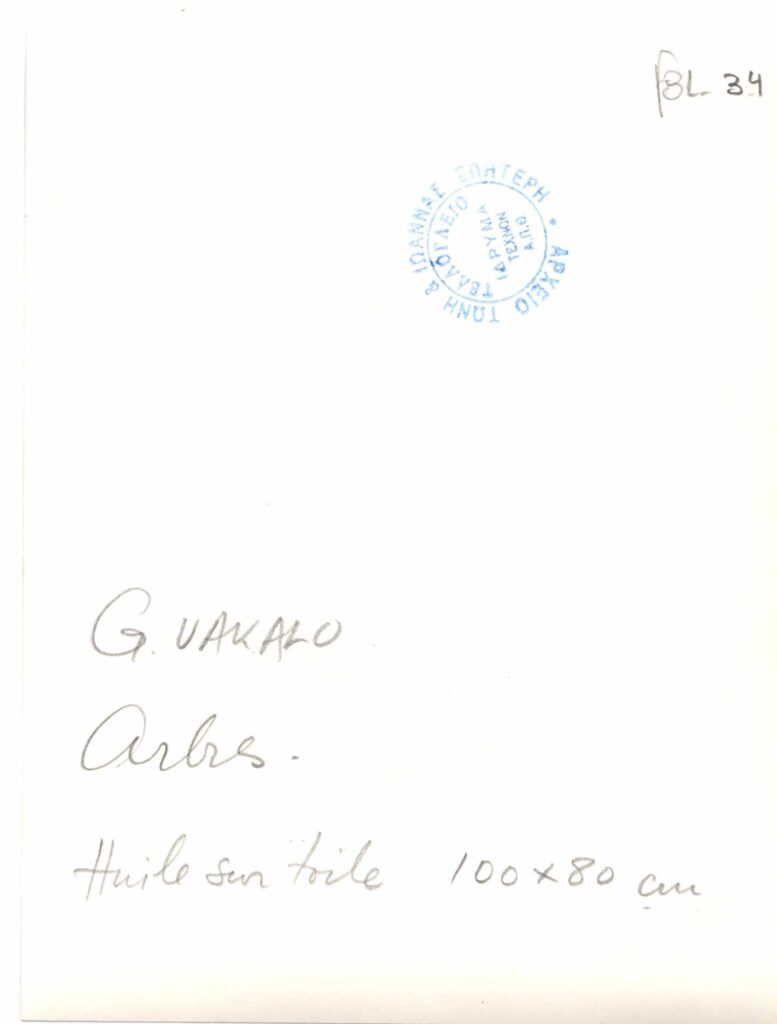 8L 34
ΑΡΧΕΙΟ ΤΩΝΗ & ΙΩΑΝΝΑΣ ΣΠΗΤΕΡΗ •
ΤΕΛΛΟΓΛΕΙΟ
ΙΔΡΥΜΑ
ΤΕΧΝΩΝ
Α.Π.Θ
G. VAKALO
Arbres.
Huile sur toile 100 x 80 cm